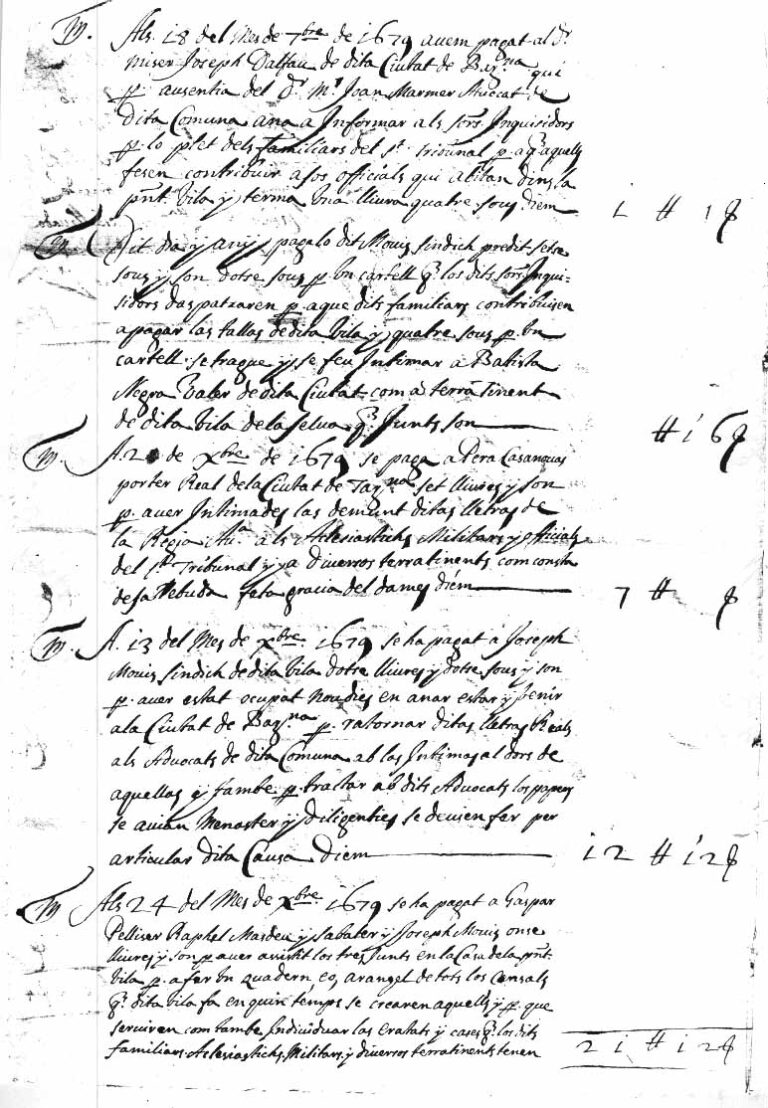 m. Als 18 del Mes de 7bre de 1679 avem pagat al Dr.
miser Joseph Dalfau de dita Ciutat de Barna qui
p. ausentia del Dr. Mr. Joan Marmer Avocat de
dita Comuna ana a Informar als Srs. Inquisidors
p. lo plet dels familiars del St. tribunal p. aqe. aquells
fesen contribuir a sos officials qui abitan dins la
pnt. vila y terma una lliura quatre sous diem
m. Dit dia y any pagalo dit Mouis sindich predit setse
sous y son dotse sous p. un cartell q. los dits sors. Inqui-
sidors das patxaren p. aque dits familiars contribuisen
apagar las tallas de dita vila y quatre sous p. un
cartell se trague y se feu Intimar a Batista
Negra Valer de dita Ciutat com a terratinent
de dita vila de la selva qs. Junts son # 16 ₰
m. A. de xbre de 1679 se paga a Pera Casanovas
porter Real de la Ciutat de Tarna set lliures y son
p. aver Intimades las demunt ditas lletras de
la Regia Aua. als Aclesiastichs Militars y officials
del St. Tribunal y a diverros terratinents com consta
de sa Rebuda feta gracia del dames diem 7 # ₰
m. A. 13 del Mes de xbre 1679 se ha pagat a Joseph
Mouis sindich de dita vila dotse lliures y dotse sous y son
p. aver estat ocupat nou dies en anar estar y venir
a la Ciutat de Barna p. ratornar ditas lletras Reals
als Advocats de dita Comuna ab las Intimas al dors de
aquellas y tambe p. tractar ab dits Advocats los papers
se avian Menaster y diligenties se devien fer per
articular dita Causa Diem 12 # 12 ₰
m. Als 24 del Mes de xbre 1679 se ha pagat a Gaspar
Pelliser Raphel Masdeu y Sabater y Joseph Mouis onse
lliures y son p. aver assistit los tres Junts en la Casa de la pnt.
vila p. a fer un quadern eo, arangel de tots los Censals
q. dita vila fa en quin temps se crearen aquells y p. que
serviren com tambe Individuar las eratats y cases q. los dits
familiars Aclesiastichs, Militars, y diverros terratinents tenen 21 # 12 ₰